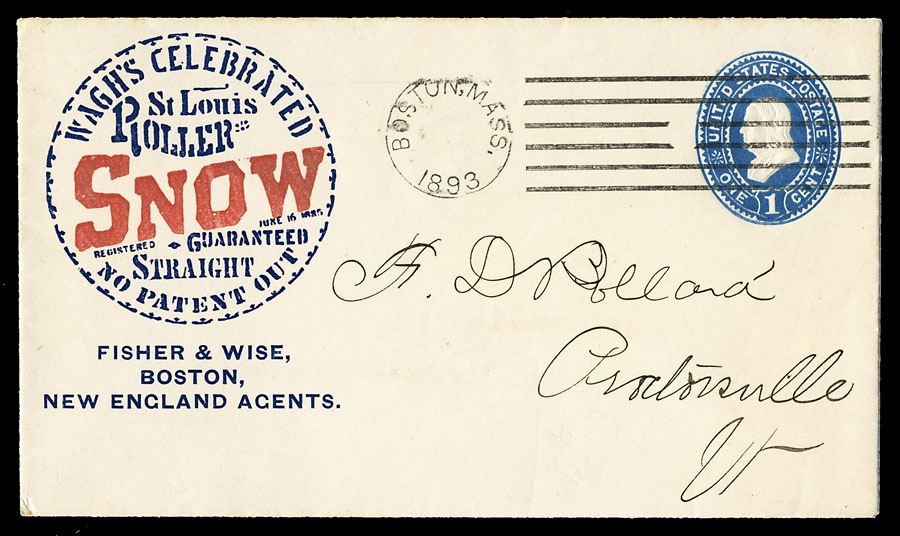 WAGH'S CELEBRATED
St Louis
ROLLER
SNOW
JUNE 16 1885
REGISTERED GUARANTEED
STRAIGHT
NO PATENT OUT
FISHER & WISE,
BOSTON,
NEW ENGLAND AGENTS.
BOSTON, MASS.
1893
UNITED STATES POSTAGE
ONE 1 CENT
F. D Pollard
Proctorsville
Vt